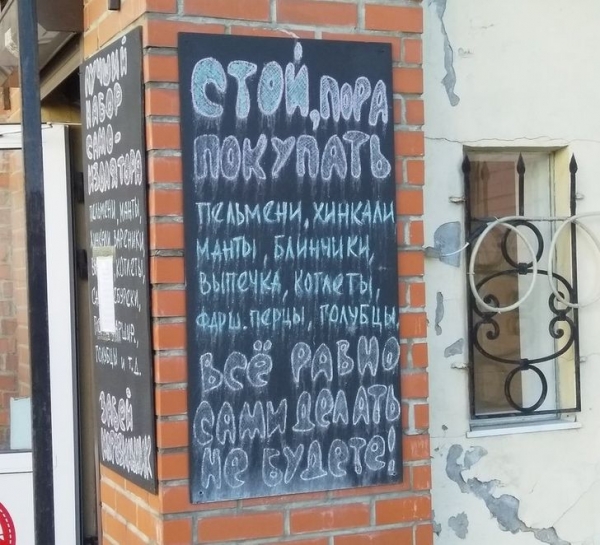 ЛУЧШИЙ
НАБОР
САМО-
ИЗОЛЯТОРА
ПЕЛЬМЕНИ, МАНТЫ,
ВАРЕНИКИ
КОТЛЕТЫ,
И Т.Д.
ЗАБЕЙ
СТОЙ, ПОРА
ПОКУПАТЬ
ПЕЛЬМЕНИ, ХИНКАЛИ
МАНТЫ, БЛИНЧИКИ,
ВЫПЕЧКА, КОТЛЕТЫ,
ФАРШ. ПЕРЦЫ, ГОЛУБЦЫ,
ВСЁ РАВНО
САМИ ДЕЛАТЬ
НЕ БУДЕТЕ!